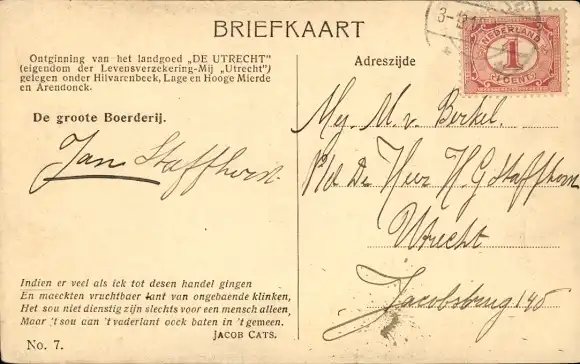 BRIEFKAART
Ontginning van het landgoed „DE UTRECHT”
(eigendom der Levensverzekering-Mij „Utrecht”)
gelegen onder Hilvarenbeek, Lage en Hooge Mierde
en Arendonck.
De groote Boerderij.
Jan Staffhorst.
Indien er veel als ick tot desen handel gingen
En maeckten vruchtbaer lant van ongebaende klinken,
Het sou niet dienstig zijn slechts voor een mensch alleen,
Maar 't sou aan 't vaderlant oock baten in 't gemeen.
JACOB CATS.
No. 7.
NEDERLAND
1
CENT
Adreszijde
Mej. M. v. Berkel.
De Heer H G Staffhorst
Utrecht
Jacobsbrug